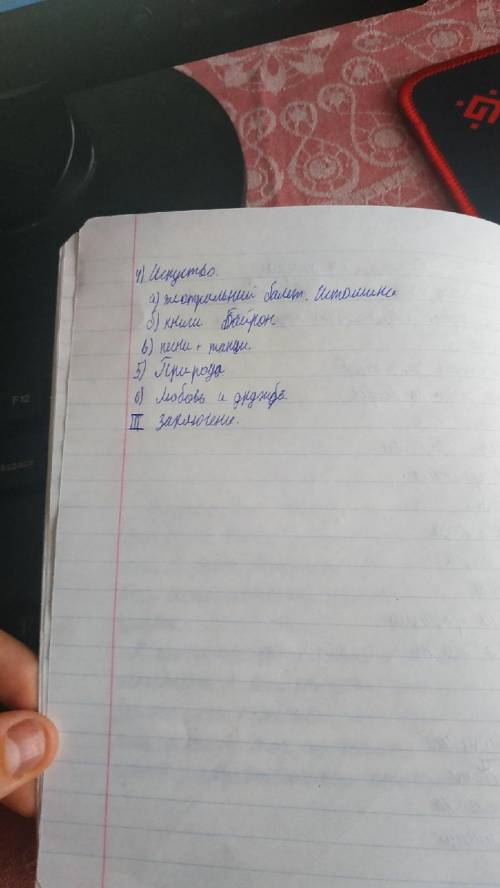 4) Искуство.
а) театральний балет. Истомина
б) книги Байрон
в) песни + танци.
5) Природа
6) Любовь и дружба
III заключение.
F12
kspace